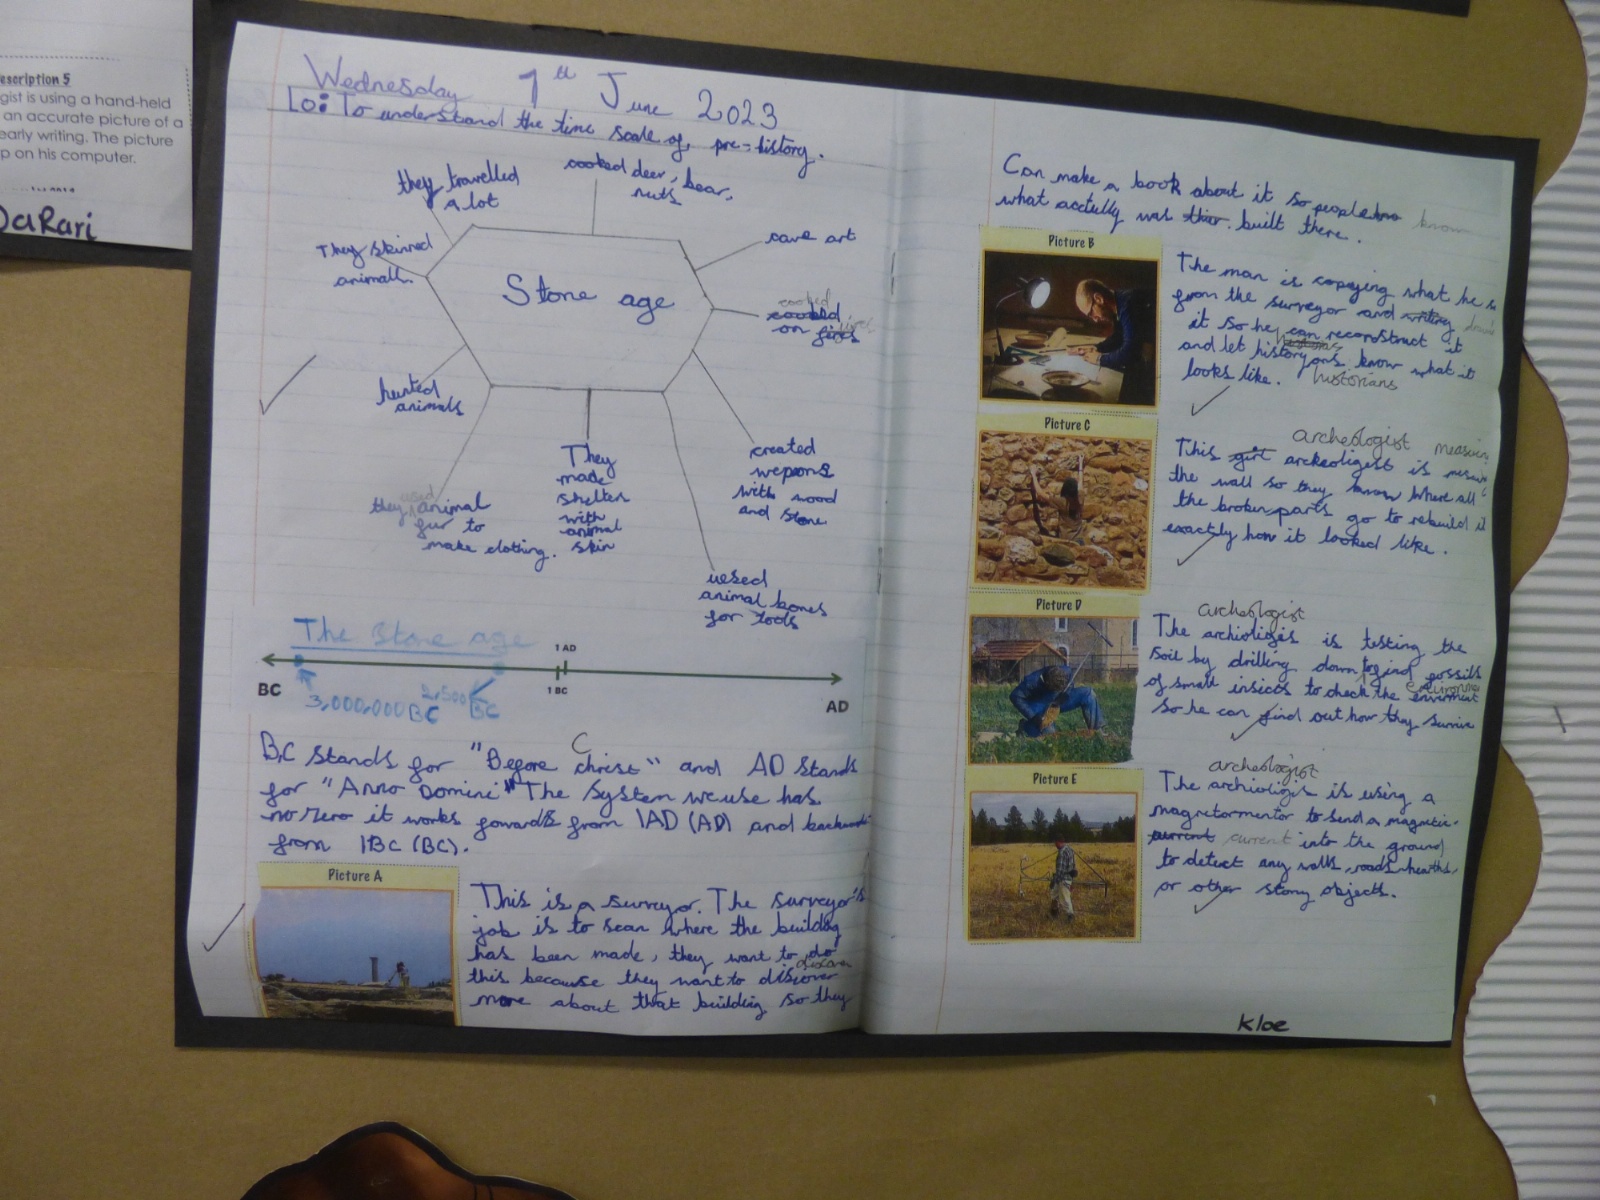 escription 5
gist is using a hand-held
an accurate picture of a
early writing. The picture
p on his computer.
DaRari
Wednesday 7th June 2023
Lo: To understand the time scale of, pre-history.
they travelled
a lot
cooked deer, bear,
nuts
They skinned
animals
cave art
Stone age
cooked
cooked
on fires
fires
hunted
animals
used
they animal
fur to
make clothing.
They
made
shelter
with
animal
skin
created
wepons
with wood
and stone
uesed
animal bones
for tools
The Stone age
1 AD
BC
1 BC
AD
3,000,000BC
2,500
BC
C
BC stands for "Before christ" and AD stands
for "Anno Domini" The system we use has
no zero it works fowards from 1AD (AD) and backwards
from 1BC (BC).
Picture A
This is a surveyor. The surveyor's
job is to scan where the buildog
has been made, they want to do
discover
this because they want to discover
more about that building so they
Can make a book about it so people know
what acctully was built there.
Picture B
The man is copaying what he is
from the surveyor and writing
it so he can reconstruct it
and let historyons know what it
looks like. historians
Picture C
archeologist measuring
This girl archeoligest is
the wall so they know where all
the broken parts go to rebuild it
exactly how it looked like.
Picture D
archeologist
The archioligis is testing the
soil by drilling down to find fossils
of small insicts to check the envirment
so he can find out how they survive
Picture E
archeologist
The archioligis is useing a
magnetormentor to send a magnetic
current current into the ground
to detect any walls, roads, hearths,
or other stony objects.
Kloe